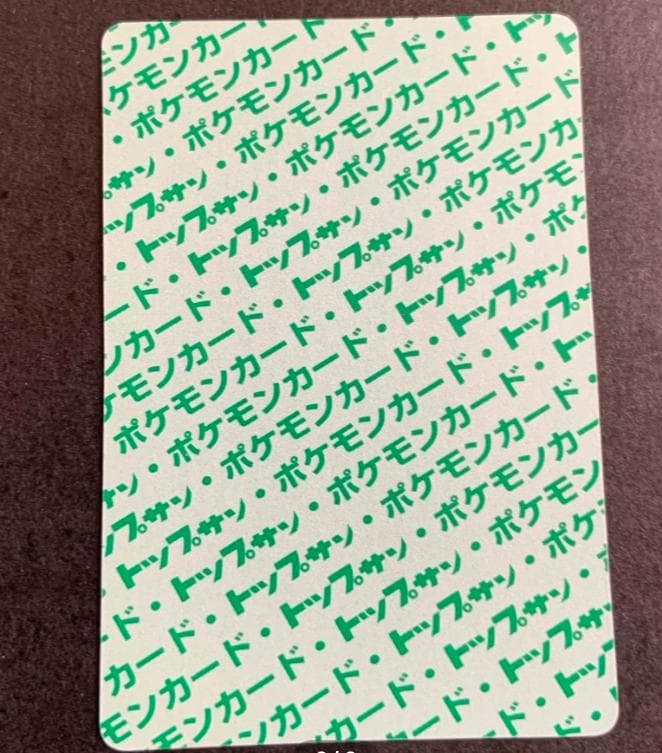 ンカー
ケモンカード
・ポケモンカード
サン・ポケモンカード・
ップサン・ポケモンカード・ト
・トップサン・ポケモンカード・トッ
ード・トップサン・ポケモンカード・ト
ンカード・トップサン・ポケモンカード
ケモンカード・トップサン・ポケモンカ
ポケモンカード・トップサン・ポケモン
サン・ポケモンカード・トップサン・ポケ
ップサン・ポケモンカード・トップサン・
・トップサン・ポケモンカード・トップサ
ード・トップサン・ポケモンカード・トッ
カード・トップサン・ポケモンカード・
モンカード・トップサン・ポケモンカー
モンカード・トップサン・ポケモン
ンカード・トップサン・ポケ
カード・トップサン・
ード・トップサ
ド・トップ
ド